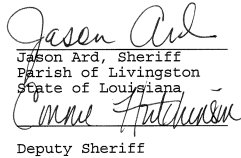 Jason Ard
Jason Ard, Sheriff
Parish of Livingston
State of Louisiana
Connie Hutchinson
Deputy Sheriff